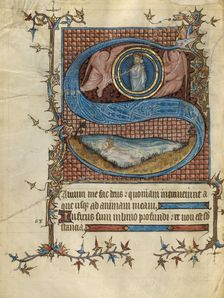 Salvum me fac deus: quoniam intraverunt a
que usqz ad animam meam.
Infixus sum in limo profundi: et non est sub
stantia.